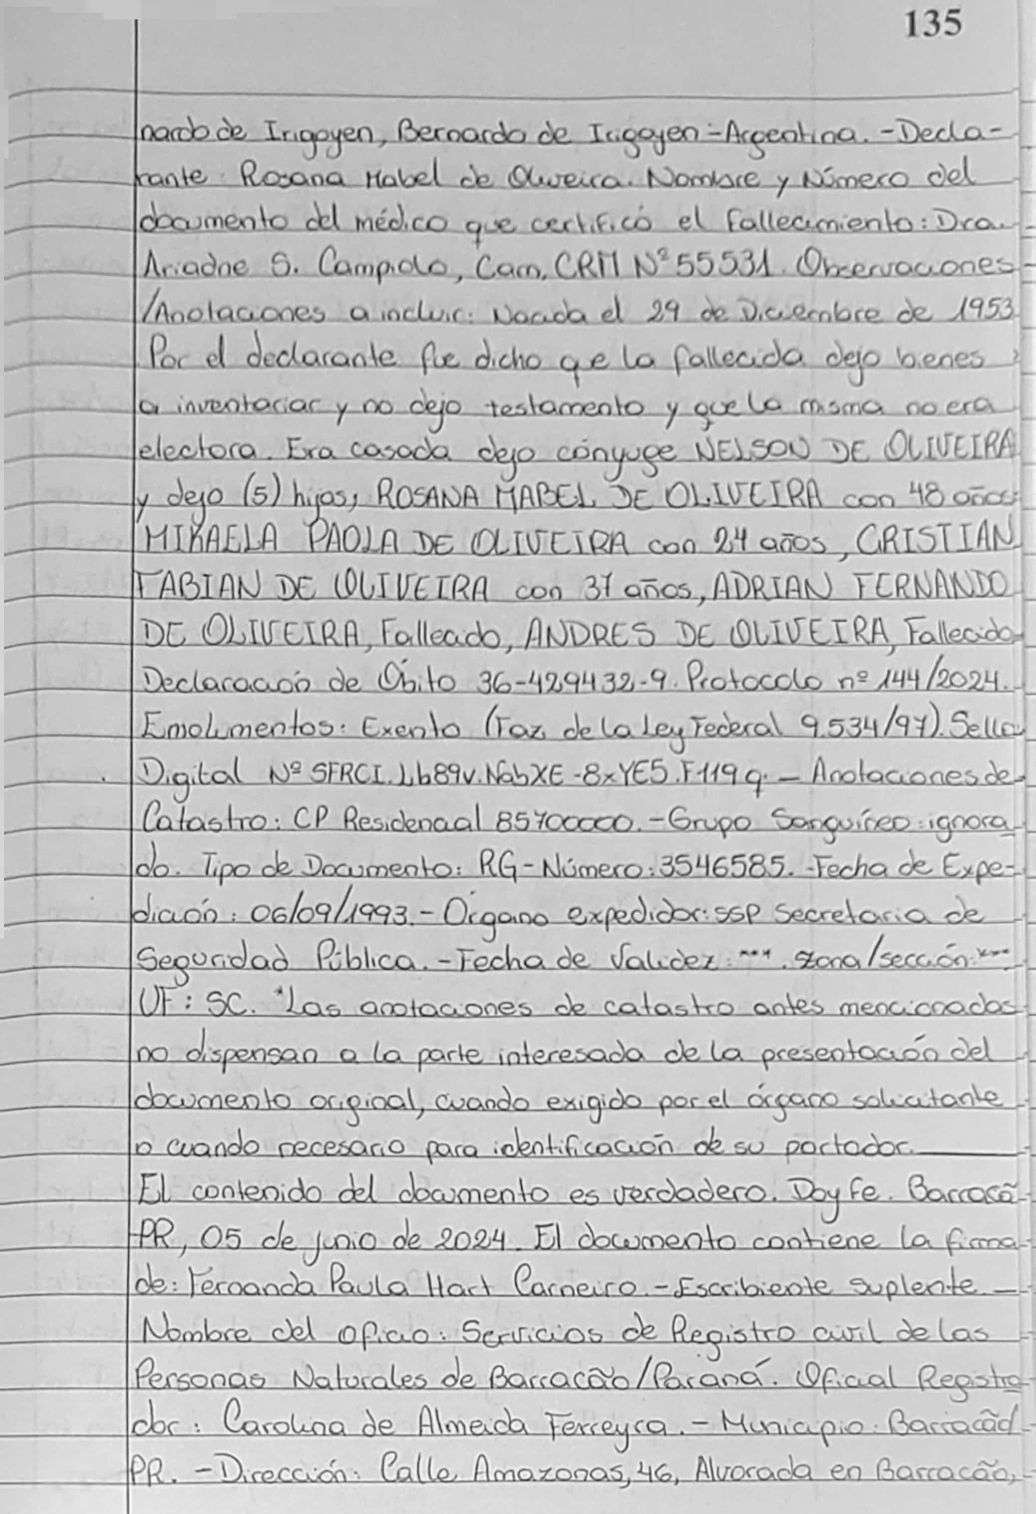 135
nardo de Irigoyen, Bernardo de Irigoyen - Argentina. - Decla-
rante: Rosana Mabel de Oliveira. Nombre y Número del
documento del médico que certificó el fallecimiento: Dra.
Ariadne S. Campiolo, Cam, CRM Nº 55531. Observaciones
/Anotaciones a incluir: Nacida el 29 de Diciembre de 1953
Por el declarante fue dicho qe la fallecida dejo bienes
a inventariar y no dejo testamento y que la misma no era
electora. Era casada dejo cónyuge NELSON DE OLIVEIRA
y dejo (5) hijos, ROSANA MABEL DE OLIVEIRA con 48 años
MIKAELA PAOLA DE OLIVEIRA con 24 años, CRISTIAN
FABIAN DE OLIVEIRA con 37 años, ADRIAN FERNANDO
DE OLIVEIRA, Fallecido, ANDRES DE OLIVEIRA, Fallecido
Declaración de Óbito 36-429432-9. Protocolo nº 144/2024.
Emolumentos: Exento (Faz, de la Ley Federal 9.534/97). Sello
Digital Nº SFRCI.Lb89v.NabXE-8xYE5.F119q. - Anotaciones de
Catastro: CP Residencial 85700000. - Grupo Sanguíneo: ignora
do. Tipo de Documento: RG - Número: 3546585. - Fecha de Expe-
dición: 06/09/1993. - Órgano expedidor: SSP Secretaria de
Seguridad Pública. - Fecha de Validez: ***. zona/sección: ***
UF: SC. "Las anotaciones de catastro antes mencionadas
no dispensan a la parte interesada de la presentación del
documento original, cuando exigido por el órgano solicitante
o cuando necesario para identificación de su portador.
El contenido del documento es verdadero. Doy fe. Barracã
PR, 05 de junio de 2024. El documento contiene la firma
de: Fernanda Paula Hart Carneiro. - Escribiente suplente -
Nombre del oficio: Servicios de Registro civil de las
Personas Naturales de Barracão/Paraná. Oficial Registra
dor: Carolina de Almeida Ferreyra. - Municipio: Barracão
PR. - Dirección: Calle Amazonas, 46, Alvorada en Barracão,